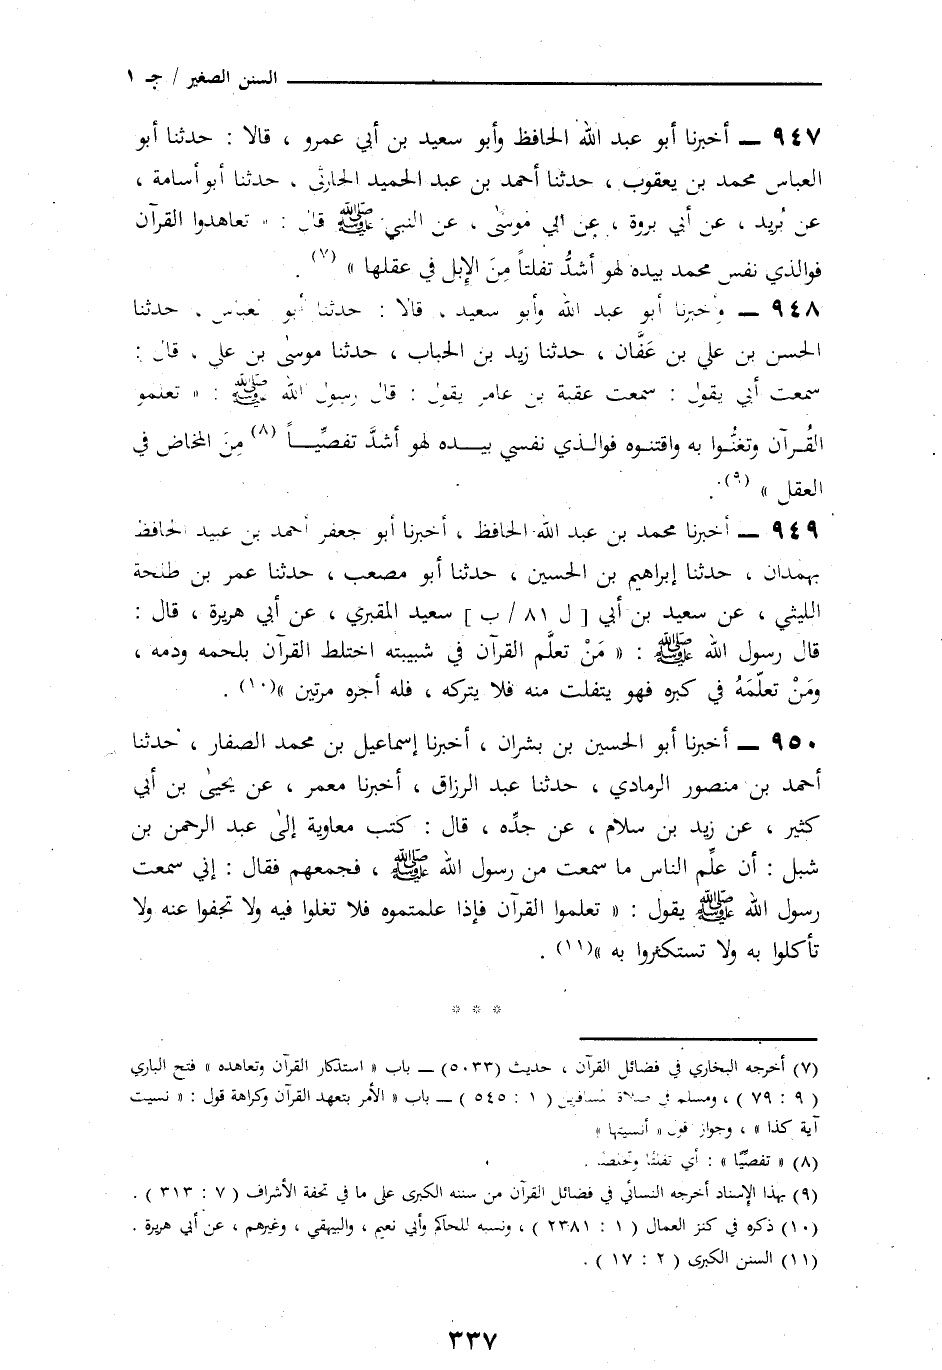 السنن الصغير / جـ ١
٩٤٧ ــ أخبرنا أبو عبد الله الحافظ وأبو سعيد بن أبي عمرو ، قالا : حدثنا أبو
العباس محمد بن يعقوب ، حدثنا أحمد بن عبد الحميد الحارثي ، حدثنا أبو أسامة ،
عن بُريد ، عن أبي بروة ، عن أبي موسىٰ ، عن النبي ﷺ قال : « تعاهدوا القرآن
فوالذي نفس محمد بيده لهو أشدُّ تفلتاً مِنَ الإبل في عقلها » (٧) .
٩٤٨ ــ وأخبرنا أبو عبد الله وأبو سعيد ، قالا : حدثنا أبو العباس ، حدثنا
الحسن بن علي بن عَفَّان ، حدثنا زيد بن الحباب ، حدثنا موسىٰ بن علي ، قال :
سمعت أبي يقول : سمعت عقبة بن عامر يقول : قال رسول الله ﷺ : « تعلمو
القُـرآن وتغنُّـوا به واقتنـوه فوالـذي نفسي بيـــده لهو أشدَّ تفصِّيـــاً (٨) مِنَ المخاض في
العقل » (٩) .
٩٤٩ ــ أخبرنا محمد بن عبد الله الحافظ ، أخبرنا أبو جعفر أحمد بن عبيد الحافظ
بهمدان ، حدثنا إبراهيم بن الحسين ، حدثنا أبو مصعب ، حدثنا عمر بن طلحة
الليثي ، عن سعيد بن أبي [ ل ٨١ / ب ] سعيد المقبري ، عن أبي هريرة ، قال :
قال رسول الله ﷺ : « مَنْ تعلَّم القرآن في شبيبته اختلط القرآن بلحمه ودمه ،
ومَنْ تعلّمَهُ في كبره فهو يتفلت منه فلا يتركه ، فله أجره مرتين »(١٠) .
٩٥٠ ــ أخبرنا أبو الحسين بن بشران ، أخبرنا إسماعيل بن محمد الصفار ، حدثنا
أحمد بن منصور الرمادي ، حدثنا عبد الرزاق ، أخبرنا معمر ، عن يحيىٰ بن أبي
كثير ، عن زيد بن سلام ، عن جدِّه ، قال : كتب معاوية إلىٰ عبد الرحمن بن
شبل : أن علِّم الناس ما سمعت من رسول الله ﷺ ، فجمعهم فقال : إني سمعت
رسول الله ﷺ يقول : « تعلموا القرآن فإذا علمتموه فلا تغلوا فيه ولا تجفوا عنه ولا
تأكلوا به ولا تستكثروا به »(١١) .
* * *
(٧) أخرجه البخاري في فضائل القرآن ، حديث (٥٠٣٣) ــ باب « استذكار القرآن وتعاهده » فتح الباري
( ٩ : ٧٩ ) ، ومسلم في صلاة المسافرين ( ١ : ٥٤٥ ) ــ باب « الأمر بتعهد القرآن وكراهة قول : « نسيت
آية كذا » ، وجواز قول « أنسيتها »
(٨) « تفصيًّا » : أي تفلتًا وتخلصًا .
(٩) بهذا الإسناد أخرجه النسائي في فضائل القرآن من سننه الكبرى على ما في تحفة الأشراف ( ٧ : ٣١٣ ) .
(١٠) ذكره في كنز العمال ( ١ : ٢٣٨١ ) ، ونسبه للحاكم وأبي نعيم ، والبيهقي ، وغيرهم ، عن أبي هريرة .
(١١) السنن الكبرى ( ٢ : ١٧ ) .
٣٣٧